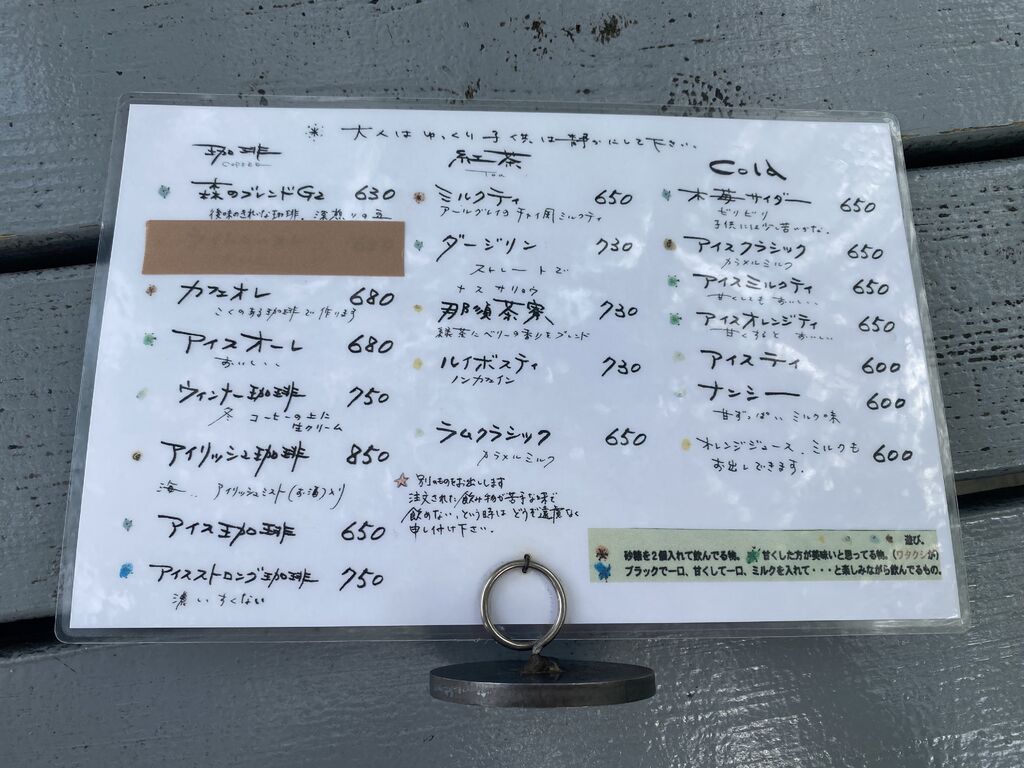 大人はゆっくり子供は静かにして下さい。
珈琲
森のブレンドG2 630
後味のきれいな珈琲。深煎りの豆
カフェオレ 680
こくのある珈琲で作ります
アイスオーレ 680
おいしい、、
ウィンナー珈琲 750
冬 コーヒーの上に
生クリーム
アイリッシュ珈琲 850
海.. アイリッシュミスト(お酒)入り
アイス珈琲 650
アイスストロング珈琲 750
濃い すくない
紅茶
Tea
ミルクティ 650
アールグレイのチャイ風ミルクティ
ダージリン 730
ストレートで
ナスサリョウ
那須茶寮 730
緑茶にベリーの香りをブレンド
ルイボスティ 730
ノンカフェイン
ラムクラシック 650
カラメルミルク
別のものをお出しします
注文された飲み物が苦手な味で
飲めない、という時はどうぞ遠慮なく
申し付け下さい。
Cold
木苺サイダー 650
ビリビリ
子供には少し苦いかな。
アイスクラシック 650
カラメルミルク
アイスミルクティ 650
甘くしてもおいしい...
アイスオレンジティ 650
甘くすると おいしい
アイスティ 600
ナンシー 600
甘ずっぱい ミルク味
オレンジジュース、ミルクも
お出しできます。 600
遊び、
砂糖を2個入れて飲んでる物。 甘くした方が美味いと思ってる物。(ワタクシが)
ブラックで一口、甘くして一口、ミルクを入れて・・・と楽しみながら飲んでるもの。